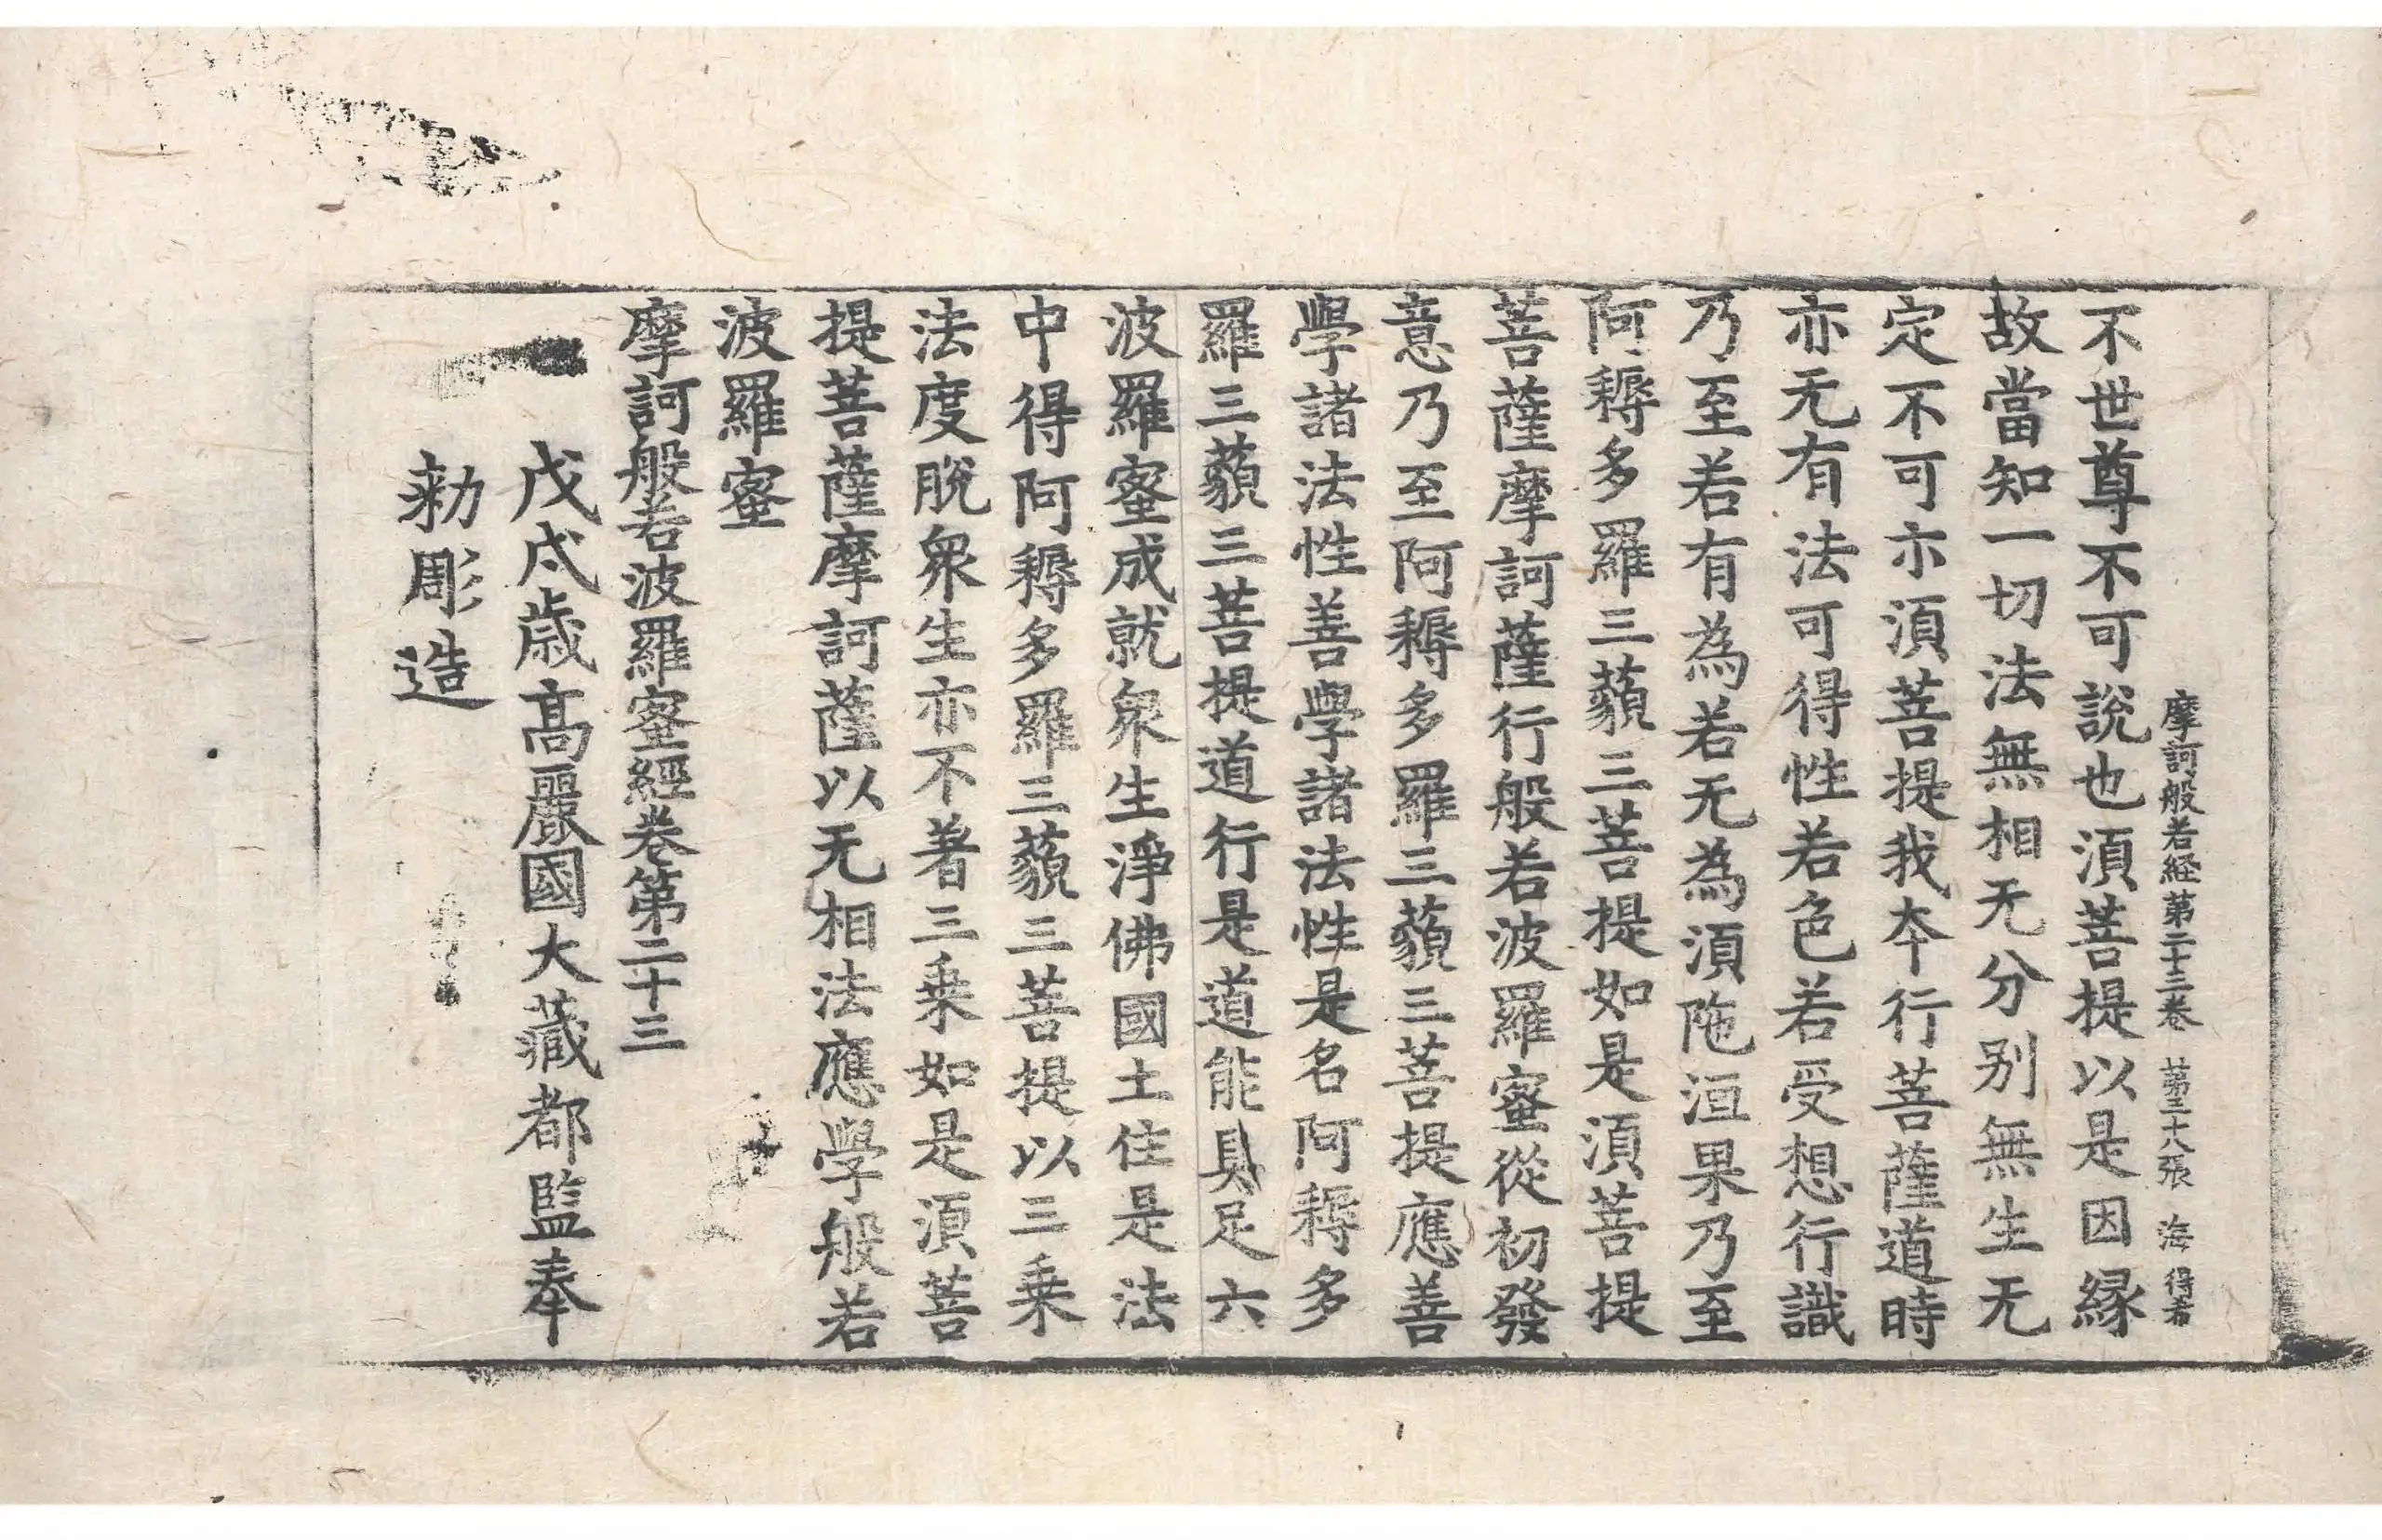 摩訶般若経第二十三卷 第三十八張 海 得者
不世尊不可說也湏菩提以是因緣
故當知一切法無相无分别無生无
定不可示湏菩提我夲行菩薩道時
亦无有法可得性若色若受想行識
乃至若有為若无為湏陁洹果乃至
阿耨多羅三藐三菩提如是湏菩提
菩薩摩訶薩行般若波羅蜜從初發
意乃至阿耨多羅三藐三菩提應善
學諸法性善學諸法性是名阿耨多
羅三藐三菩提道行是道能具足六
波羅蜜成就衆生淨佛國土住是法
中得阿耨多羅三藐三菩提以三乗
法度脫衆生亦不著三乗如是湏菩
提菩薩摩訶薩以无相法應學般若
波羅蜜
摩訶般若波羅蜜經卷第二十三
戊戌歲高麗國大藏都監奉
勑彫造